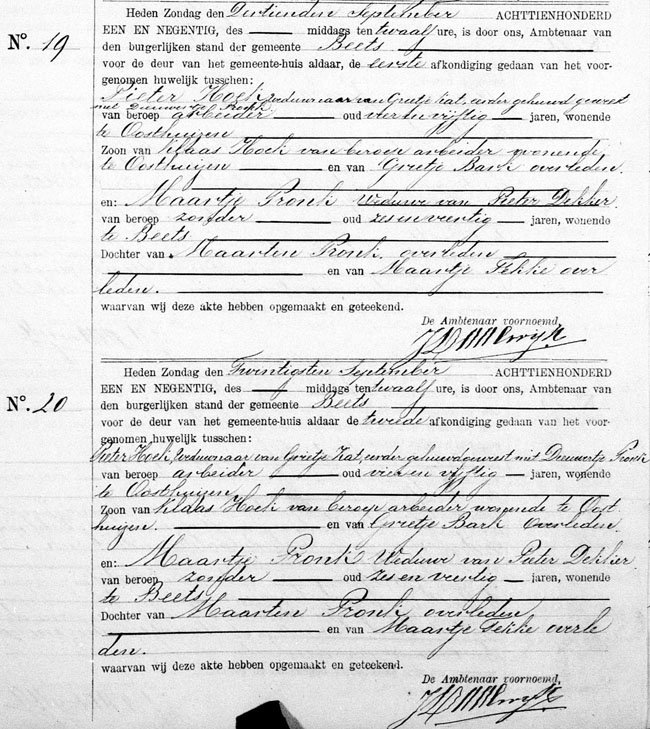 Heden Zondag den Dertienden September ACHTTIENHONDERD
EEN EN NEGENTIG, des middags ten twaalf ure, is door ons, Ambtenaar van
No. 19
den burgerlijken stand der gemeente Beets
voor de deur van het gemeente-huis aldaar, de eerste afkondiging gedaan van het voor-
genomen huwelijk tusschen:
Pieter Hoek, Weduwnaar van Grietje Kat, eerder gehuwd geweest
met Dieuwertje Pronk
van beroep arbeider oud vier en vijftig jaren, wonende
te Oosthuizen
Zoon van Klaas Hoek van beroep arbeider wonende
te Oosthuizen en van Grietje Bark overleden.
en: Maartje Pronk Weduwe van Pieter Dekker
van beroep zonder oud zes en veertig jaren, wonende
te Beets
Dochter van Maarten Pronk overleden
en van Maartje Fekke over
leden.
waarvan wij deze akte hebben opgemaakt en geteekend.
De Ambtenaar voornoemd,
Heden Zondag den Twintigsten September ACHTTIENHONDERD
EEN EN NEGENTIG, des middags ten twaalf ure, is door ons, Ambtenaar van
No. 20
den burgerlijken stand der gemeente Beets
voor de deur van het gemeente-huis aldaar de tweede afkondiging gedaan van het voor-
genomen huwelijk tusschen:
Pieter Hoek, Weduwnaar van Grietje Kat, eerder gehuwd geweest met Dieuwertje Pronk
van beroep arbeider oud vier en vijftig jaren, wonende
te Oosthuizen
Zoon van Klaas Hoek van beroep arbeider wonende te Oost
huizen. en van Grietje Bark overleden
en: Maartje Pronk Weduwe van Pieter Dekker
van beroep zonder oud zes en veertig jaren, wonende
te Beets
Dochter van Maarten Pronk overleden
en van Maartje Fekke overle
den.
waarvan wij deze akte hebben opgemaakt en geteekend.
De Ambtenaar voornoemd,